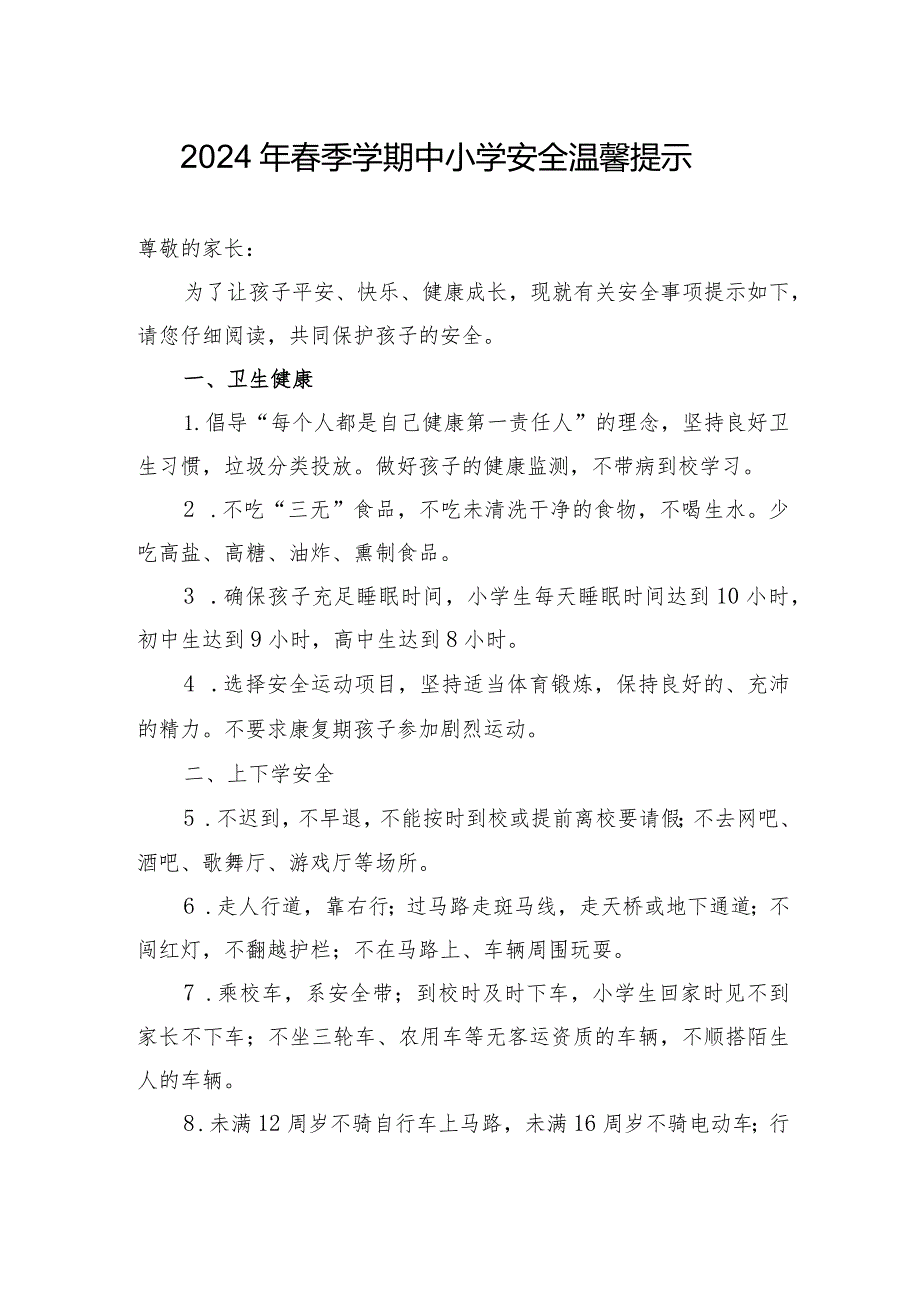 2024 年春季学期中小学安全温馨提示
尊敬的家长：
为了让孩子平安、快乐、健康成长，现就有关安全事项提示如下，
请您仔细阅读，共同保护孩子的安全。
一、卫生健康
1.倡导“每个人都是自己健康第一责任人”的理念，坚持良好卫
生习惯，垃圾分类投放。做好孩子的健康监测，不带病到校学习。
2 .不吃“三无”食品，不吃未清洗干净的食物，不喝生水。少
吃高盐、高糖、油炸、熏制食品。
3 .确保孩子充足睡眠时间，小学生每天睡眠时间达到 10 小时，
初中生达到 9 小时，高中生达到 8 小时。
4 .选择安全运动项目，坚持适当体育锻炼，保持良好的、充沛
的精力。不要求康复期孩子参加剧烈运动。
二、上下学安全
5 .不迟到，不早退，不能按时到校或提前离校要请假；不去网吧、
酒吧、歌舞厅、游戏厅等场所。
6 .走人行道，靠右行；过马路走斑马线，走天桥或地下通道；不
闯红灯，不翻越护栏；不在马路上、车辆周围玩耍。
7 .乘校车，系安全带；到校时及时下车，小学生回家时见不到
家长不下车；不坐三轮车、农用车等无客运资质的车辆，不顺搭陌生
人的车辆。
8.未满 12 周岁不骑自行车上马路，未满 16 周岁不骑电动车；行